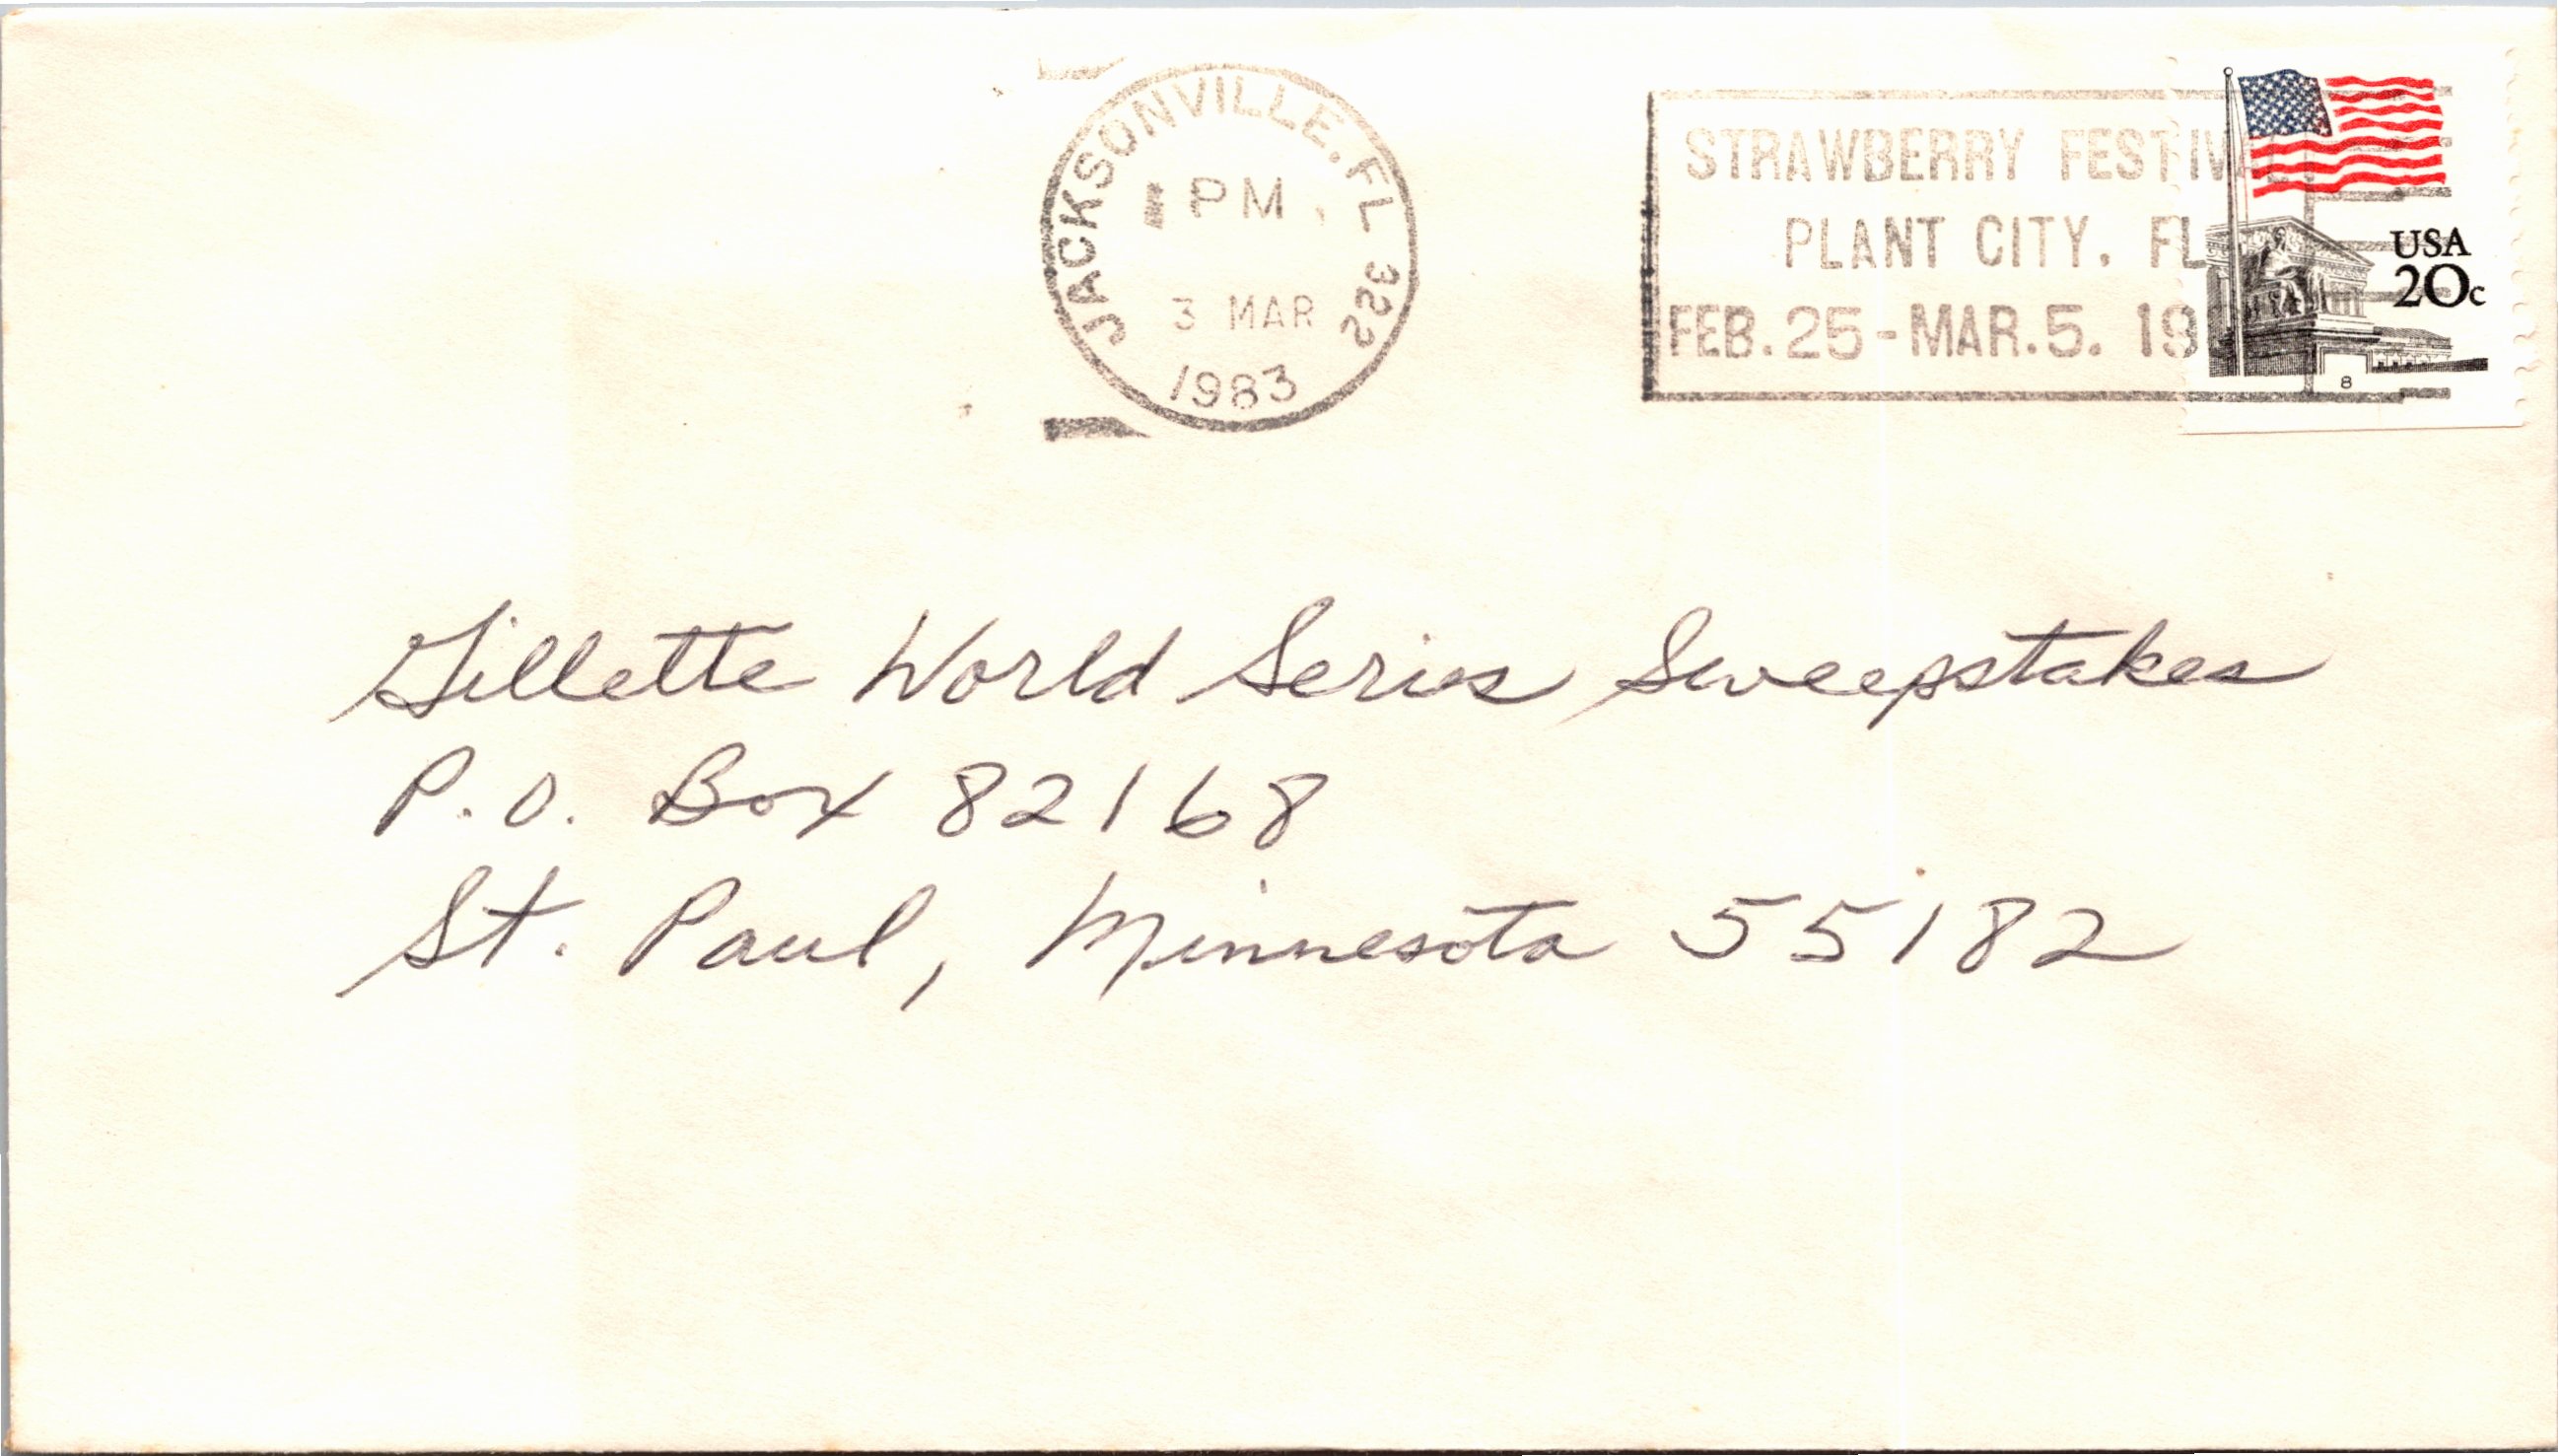 JACKSONVILLE, FL 322
PM
3 MAR
1983
STRAWBERRY FESTIVAL
PLANT CITY, FL
FEB. 25 - MAR. 5. 19
USA
20c
8
Gillette World Series Sweepstakes
P.O. Box 82168
St. Paul, Minnesota 55182